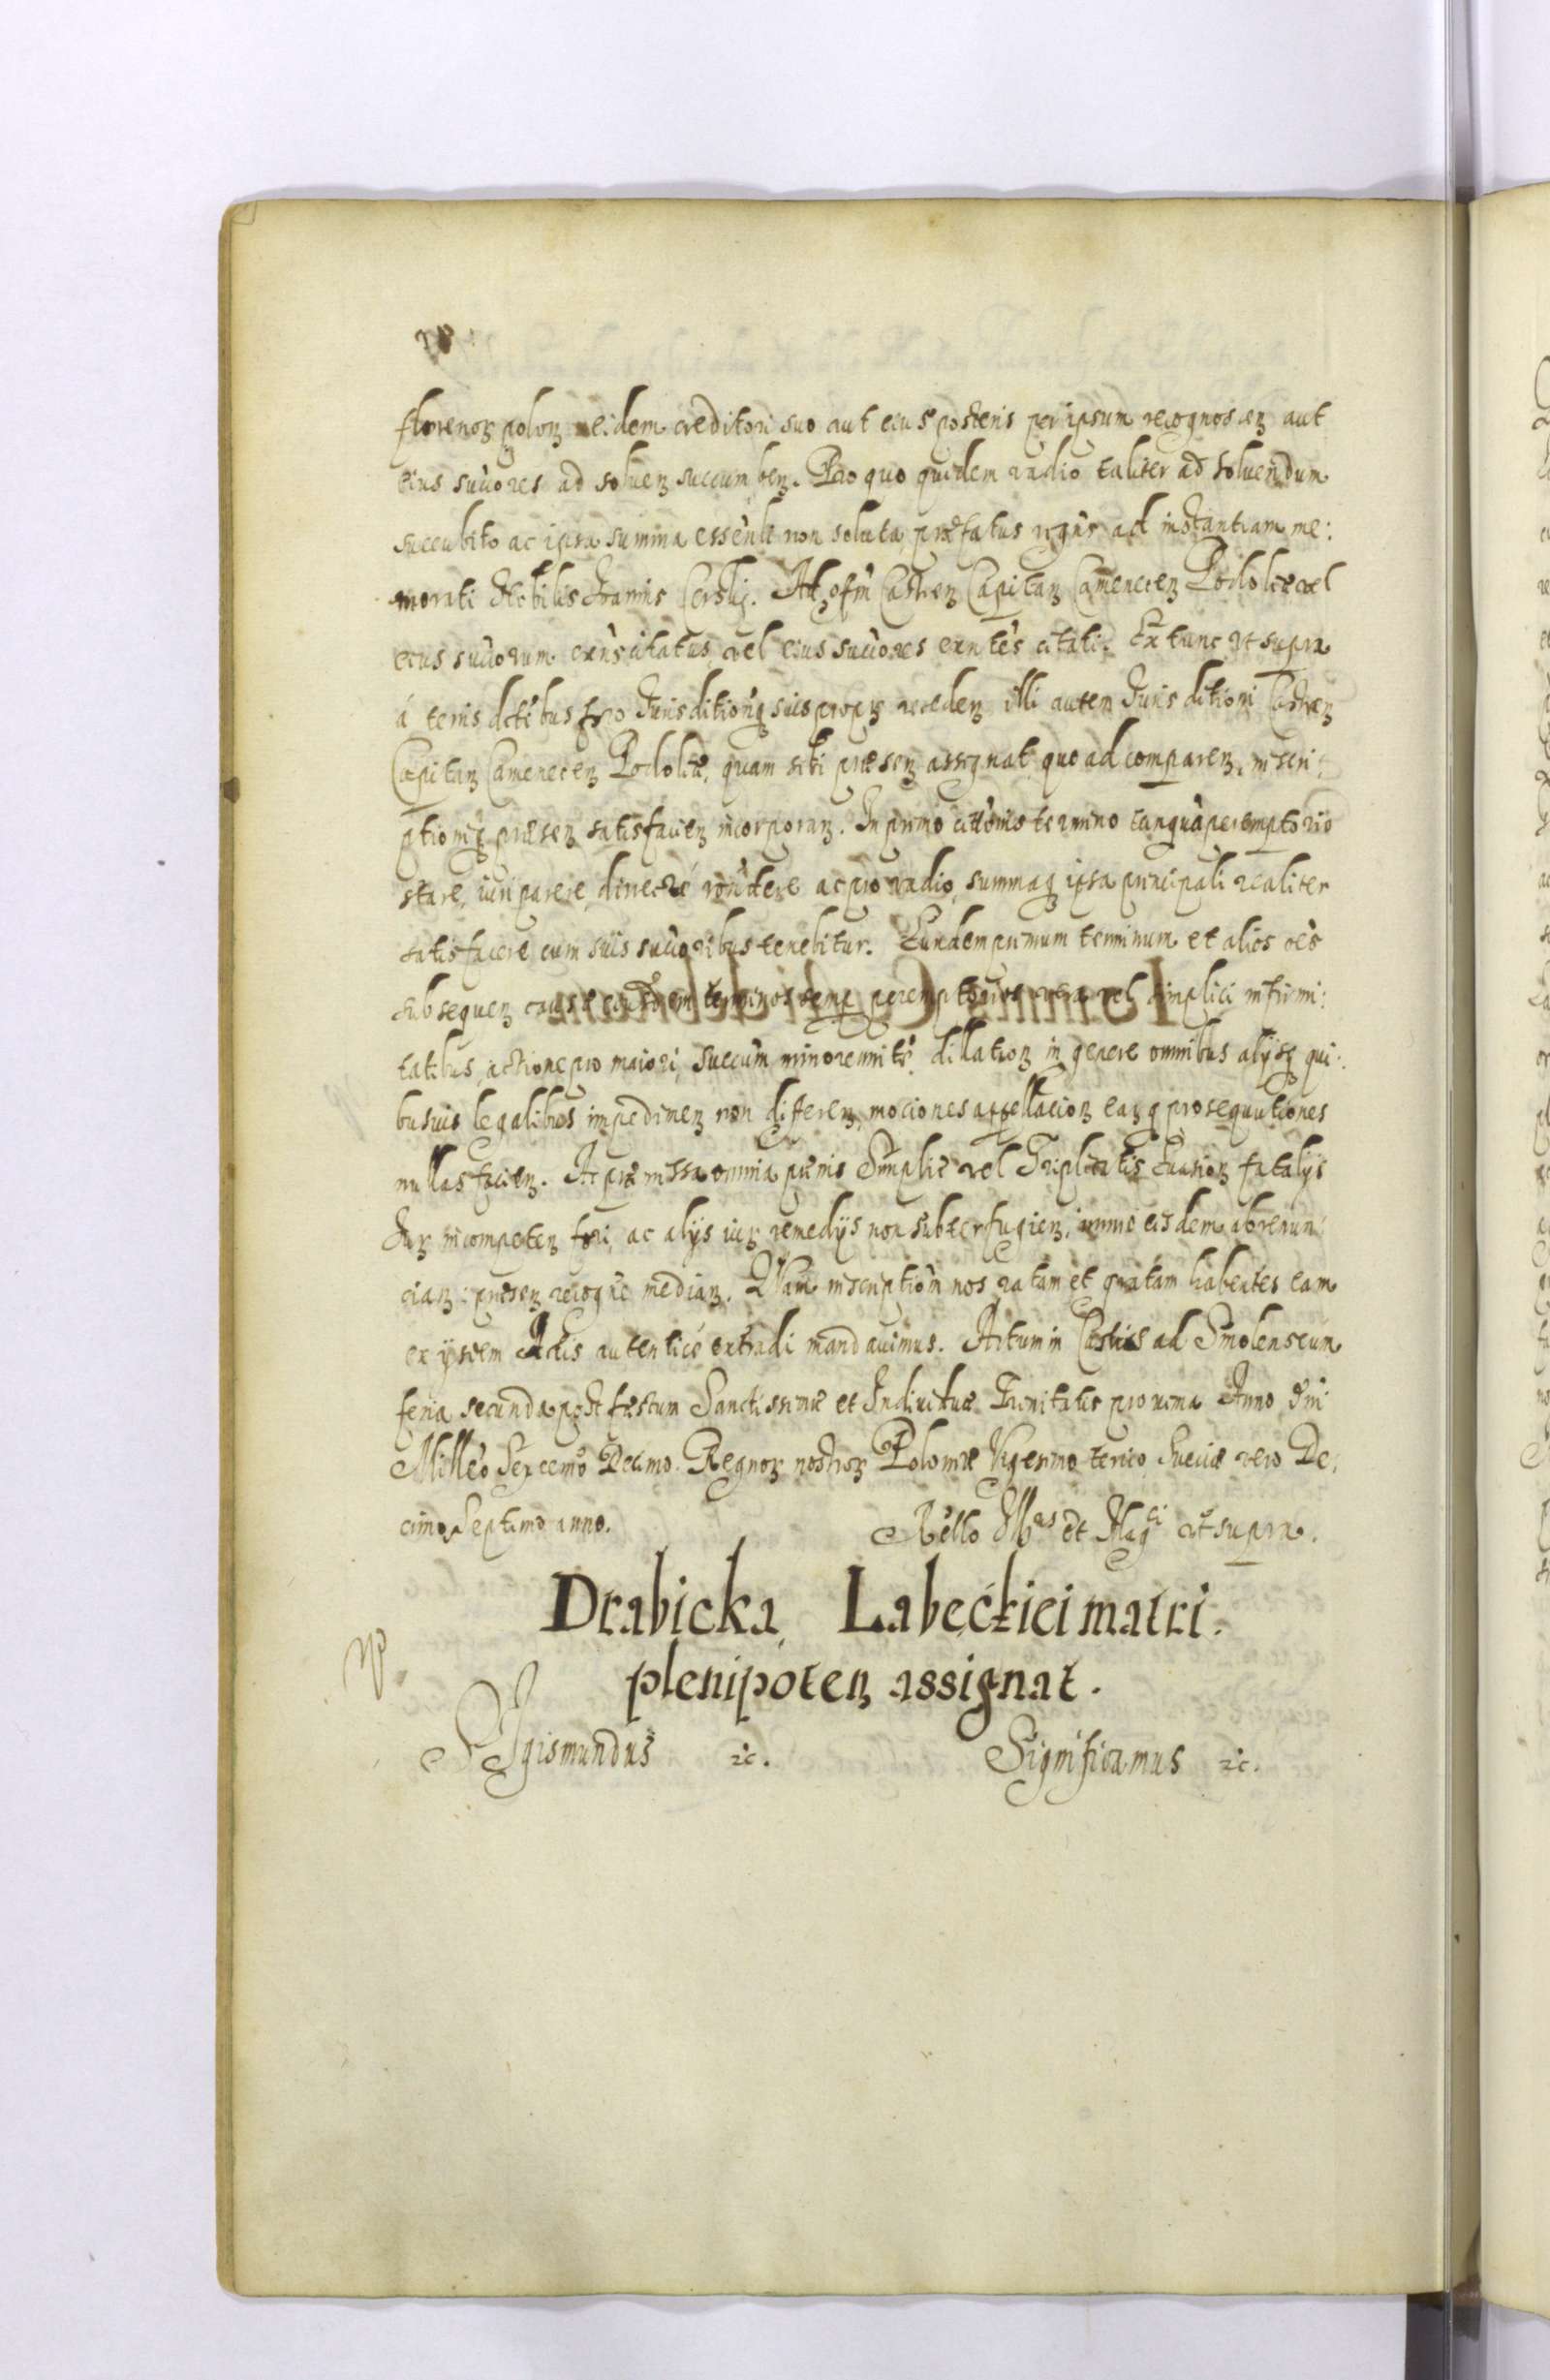 florenoꝝ poloꝝ eidem creditori suo aut eius posteris per ipsum recognoscenꝝ aut
eius succores ad soluenꝝ succumbenꝝ. Pro quo quidem vadio taliter ad soluendum
succubito ac ipsa summa essente non soluta, præfatus regns ad instantiam me:
morati Nobilis Ioannis Ad offm Castrenꝝ Capitanꝝ Camenecenꝝ Podoliæ vel
eius succorum exns citatus, vel eius succores exntes citati. Ex tunc vt supra
á terris dctibus foro Iurisditionꝗ suis proprÿs recedenꝝ illi autem Iurisditioni Castrenꝝ
Capitanꝝ Camenecenꝝ Podoliæ, quam sibi præsenꝝ assignat quo ad comparenꝝ, inscri:
ptioniꝗ præsenꝝ satisfacienꝝ incorporanꝝ. In primo cittōnis termino tanquā peremptorio
stare, iuri parere, directé rōndere ac pro vadio, summaꝗ ipsa principali realiter
satisfacere cum suis succoribus tenebitur. Eundem primum terminum et alios oēs
subsequenꝝ causæ eiusdem terminos semp peremptorios vera vel simplici infirmi:
tatibus, actione pro maiori, succum minorennite dillationꝝ in genere omnibus alÿsꝗ qui:
busuis legalibus impedimenꝝ non differenꝝ, mociones appellacionꝝ earꝗ prosequutiones
nullas facienꝝ. Ac præmissa omnia præmis Simplic vel Triplicatis Euasionꝝ fatalÿs
Iurꝝ incompetenꝝ fori, ac alÿs iurꝝ remedÿs non subterfugienꝝ, immo eisdem abrenun:
cianꝝ: præsenꝝ recognc medianꝝ. Quam inscriptiōm nos ratam et gratam habentes eam
ex ÿsdem Actis autenticé extradi mandauimus. Actum in Castris ad Smolenscum
feria secunda post festum Sanctissimæ et Indiuiduæ Trinitatis proxima Anno Dni
Millēo Sexcemō Decimo. Regnoꝝ nostroꝝ Poloniæ Vigesimo tercio Sueciæ vero De:
cimo Septimo anno.
Rello et Mag vt supra.
Drabicka Labęckiei matri.
plenipotenꝝ assignat.
Sigismundus ꝛc. Significamus ꝛc.